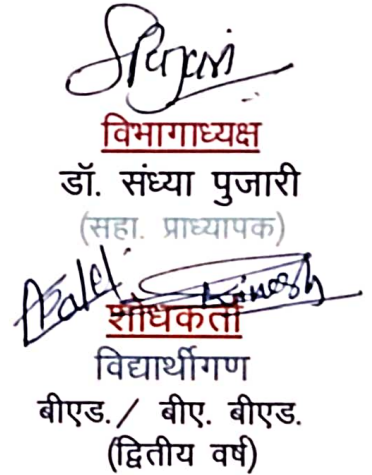 विभागाध्यक्ष
डॉ. संध्या पुजारी
(सहा. प्राध्यापक)
शोधकर्ता
विद्यार्थीगण
बीएड./ बीए. बीएड.
(द्वितीय वर्ष)